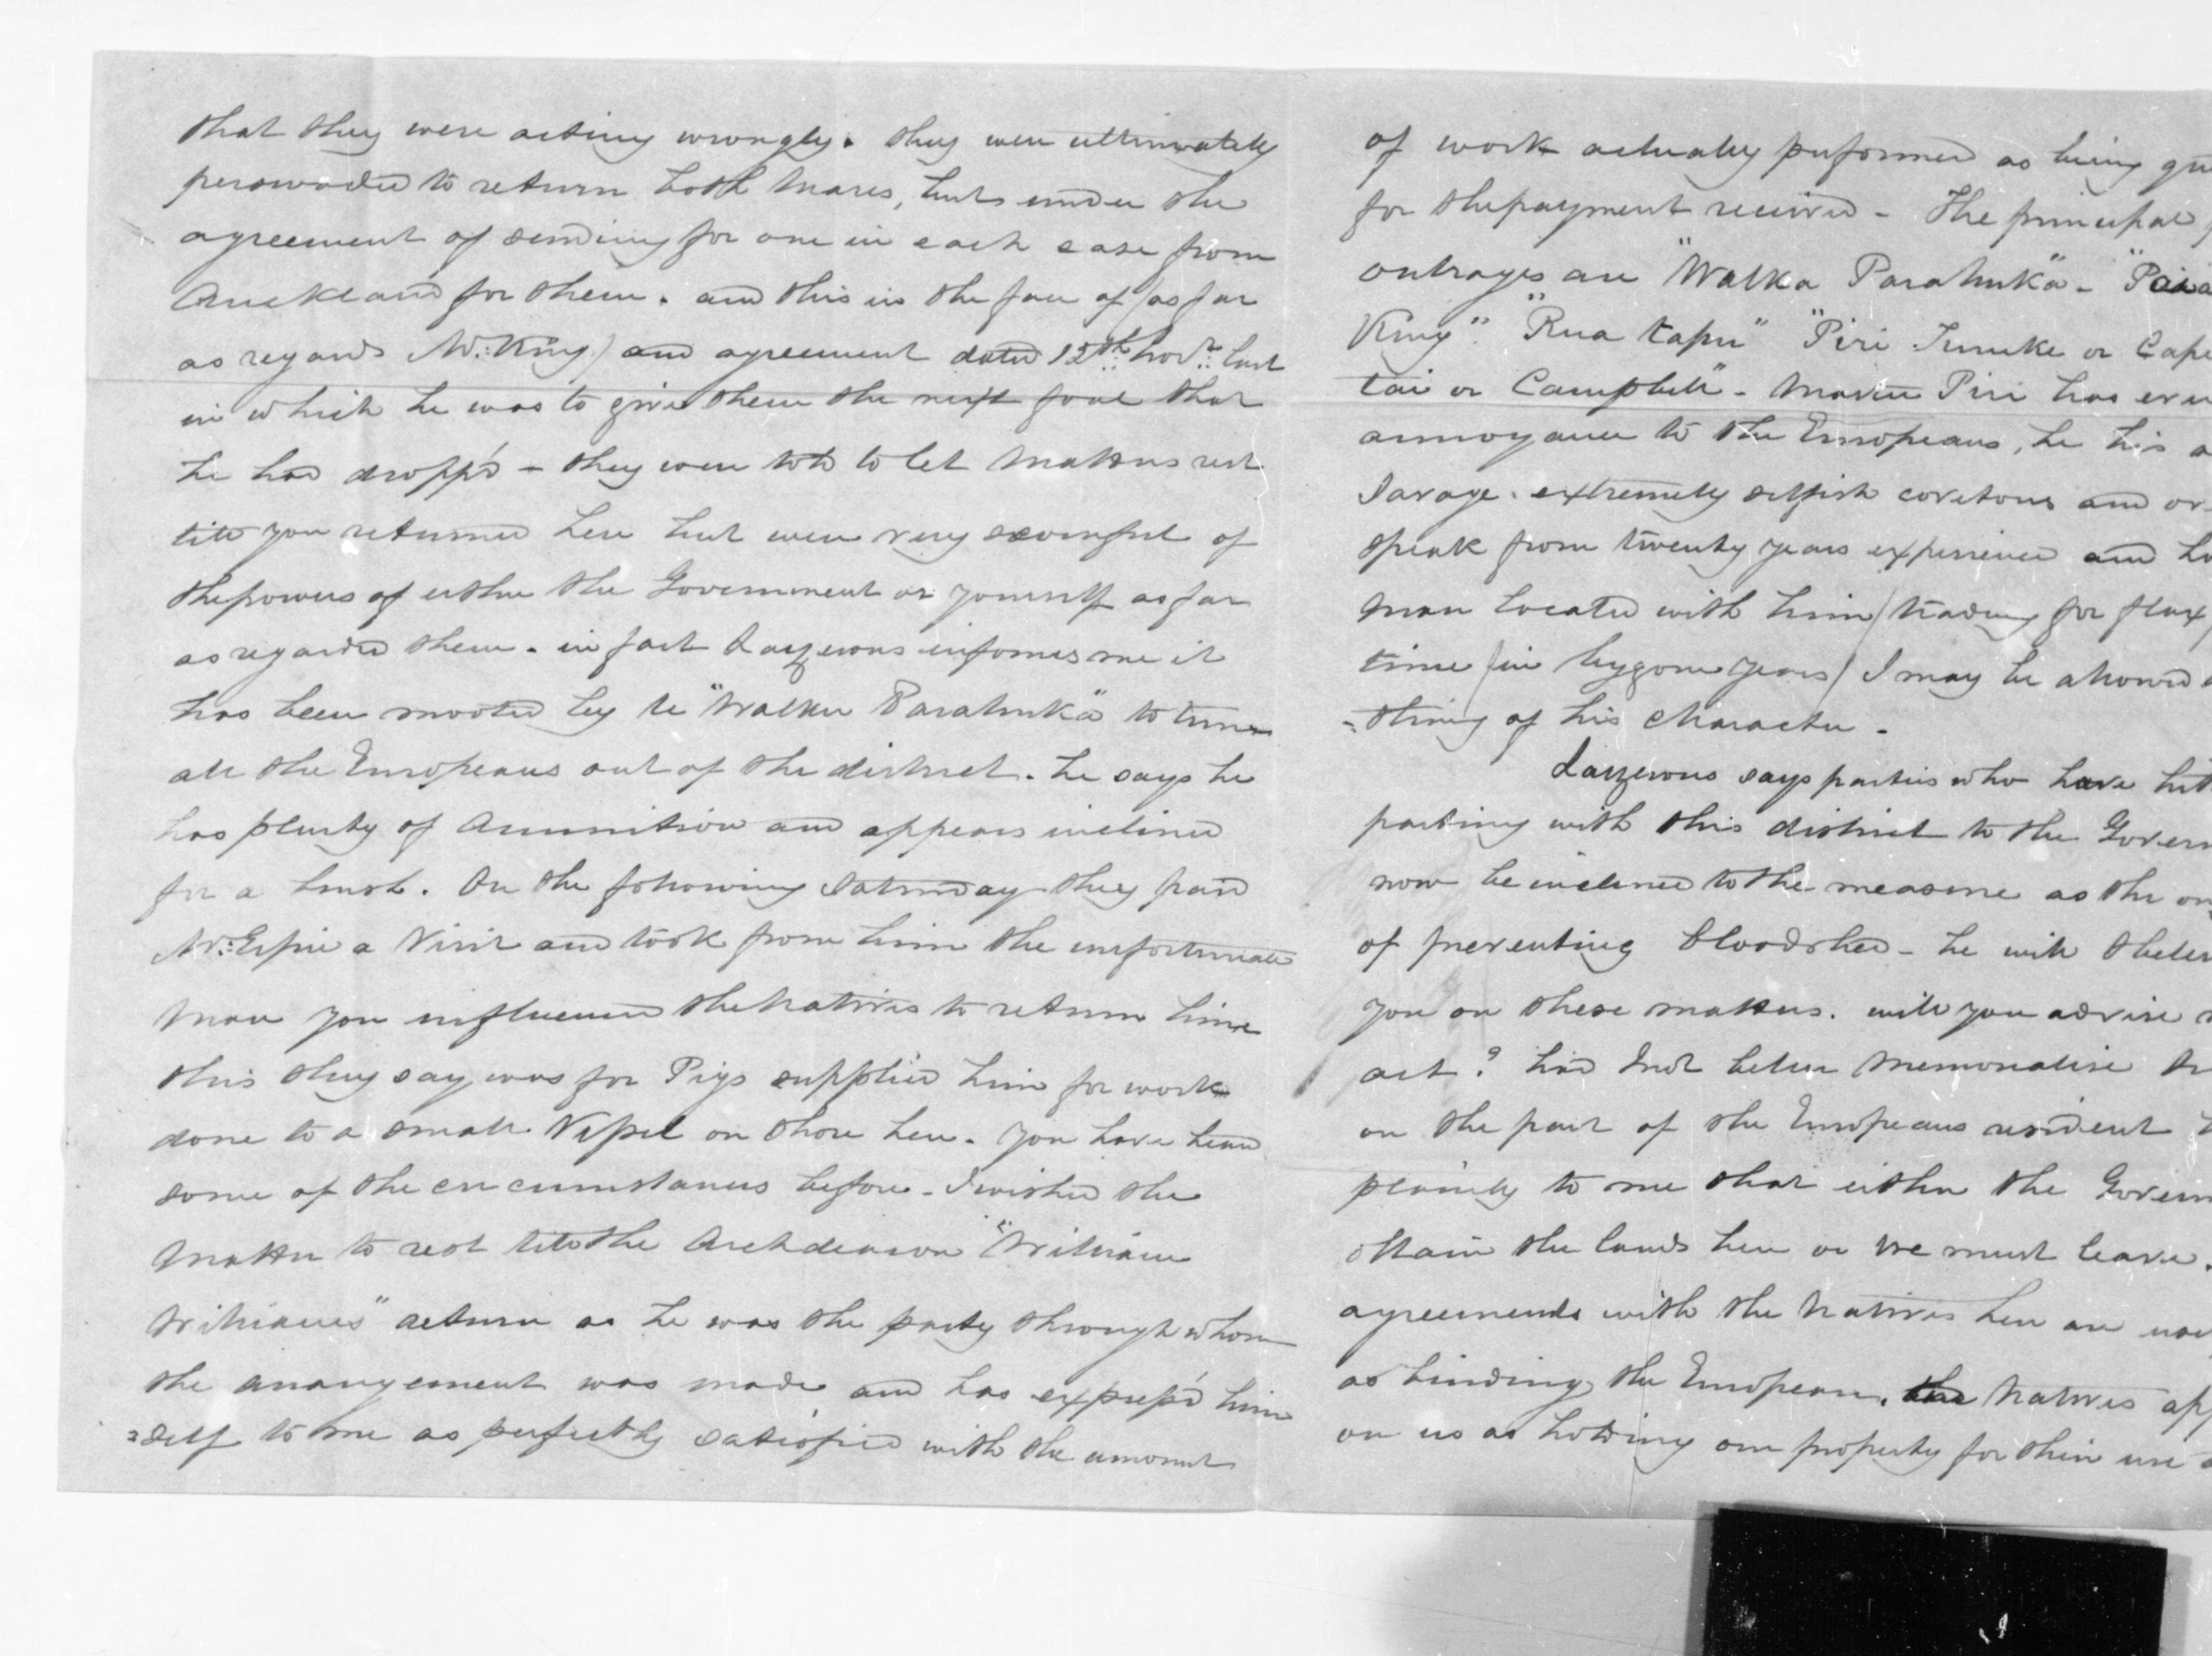 that they were acting wrongly. they were ultimmately
perswaded to return both Mares, but under the
agreement of sending for one in each case from
Auckland for them. and this in the face of (as far
as regards Mr. King) and agreement dated 12th Novr. last
in which he was to give them the next foal that
he had dropp'd - they were told to let Matters rest
till you returned here but were very scornful of
the powers of either the Government or yourself as far
as regarded them. in fact Lazerous informes me it
has been mooted by Te "Walker Parahuka" to turn
all the Europeans out of the district. he says he
has plenty of Ammunition and appears inclined
for a brush. On the following Saturday they paid
Mr. Espie a Visit and took from him the unfortunate
Mare you influenced the Natives to return him
this they say was for Pigs supplied him for work
done to a small Vessel on shore here. You have heard
some of the circumstances before. I wished the
Matter to rest till the Archdeacon "William
Williams" return as he was the party through whom
the arrangement was made and has express'd him
=self to me as perfectly satisfied with the amount
of work actually performed as being
for the payment received - The principal
outrages are "Walka Parahuka" -
King". "Rua tapu" "Piri Tunuke or
tai or Campbell" - Piri has
annoyance to the Europeans, he his a
Savage. extremely selfish covetous and
speak from twenty years experience and
man located with him (trading for flax
time (in bygone years) I may be allowed
=thing of his Character.
Lazerous says parties who have
parting with this district to the
now be inclined to the measure as the
of preventing bloodshed - he will
you on these matters. will you advise
act? had I not better Memoralise
on the part of the Europeans resident
plainly to me that either the
obtain the lands here or we must leave.
agreements with the Natives here are
as binding the European. the Natives
on us as holding our property for their use